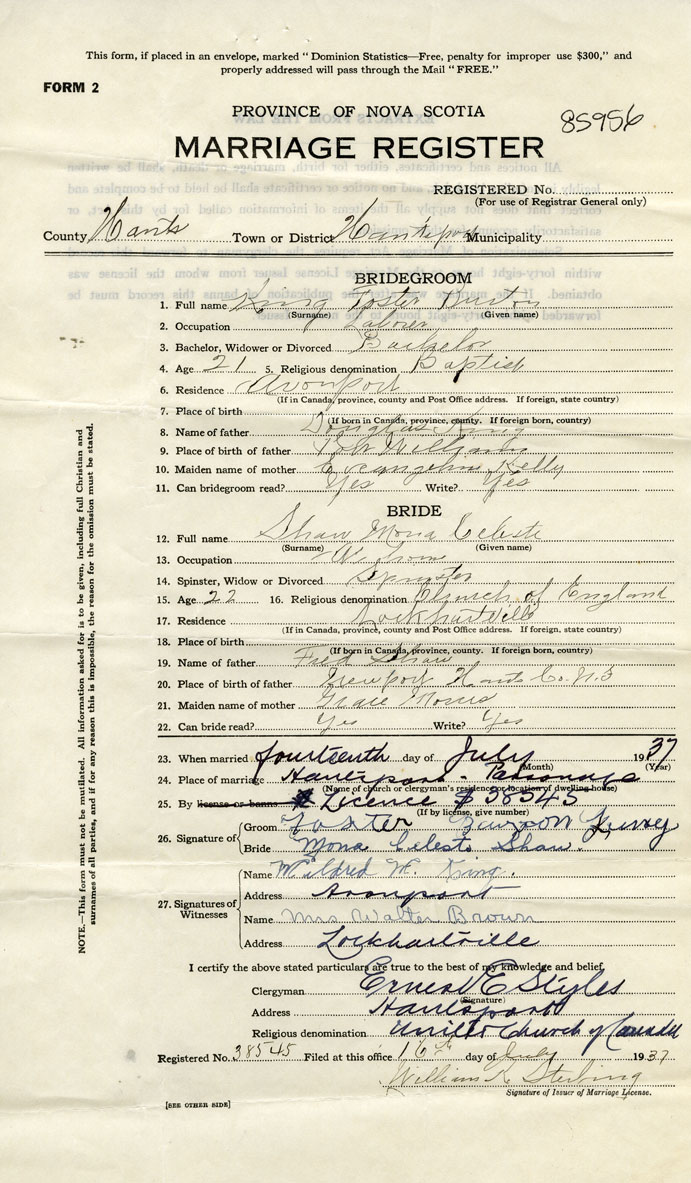 This form, if placed in an envelope, marked "Dominion Statistics—Free, penalty for improper use $300," and
properly addressed will pass through the Mail "FREE."
FORM 2
PROVINCE OF NOVA SCOTIA
85956
MARRIAGE REGISTER
REGISTERED No.
(For use of Registrar General only)
County Hants Town or District Hantsport Municipality
BRIDEGROOM
1. Full name King Foster
(Surname) (Given name)
2. Occupation Laborer
3. Bachelor, Widower or Divorced Bachelor
4. Age 21 5. Religious denomination Baptist
6. Residence Avonport
(If in Canada, province, county and Post Office address. If foreign, state country)
7. Place of birth
(If born in Canada, province, county. If foreign born, country)
8. Name of father Douglas King
9. Place of birth of father Port Williams
10. Maiden name of mother Evangeline Kelly
11. Can bridegroom read? Yes Write? Yes
BRIDE
12. Full name Shaw Mona Celeste
(Surname) (Given name)
13. Occupation At home
14. Spinster, Widow or Divorced Spinster
15. Age 22 16. Religious denomination Church of England
17. Residence Lockhartville
(If in Canada, province, county and Post Office address. If foreign, state country)
18. Place of birth
(If born in Canada, province, county. If foreign born, country)
19. Name of father Fred Shaw
20. Place of birth of father Newport Hants Co. N.S
21. Maiden name of mother Grace
22. Can bride read? Yes Write? Yes
23. When married fourteenth day of July 1937
(Month) (Year)
24. Place of marriage Hantsport - Parsonage
(Name of church or clergyman's residence or location of dwelling house)
25. By license or banns Licence $ 38545
(If by license, give number)
26. Signature of
Groom Foster King
Bride Mona Celeste Shaw.
27. Signatures of Witnesses
Name Mildred H. King.
Address Avonport
Name Mrs Walter Brown
Address Lockhartville
I certify the above stated particulars are true to the best of my knowledge and belief,
Clergyman Ernest E Styles
(Signature)
Address Hantsport
Religious denomination United Church of Canada
Registered No. 38545 Filed at this office 16th day of July 1937
William K Sterling
Signature of Issuer of Marriage License.
[SEE OTHER SIDE]
NOTE.—This form must not be mutilated. All information asked for is to be given, including full Christian and
surnames of all parties, and if for any reason this is impossible, the reason for the omission must be stated.